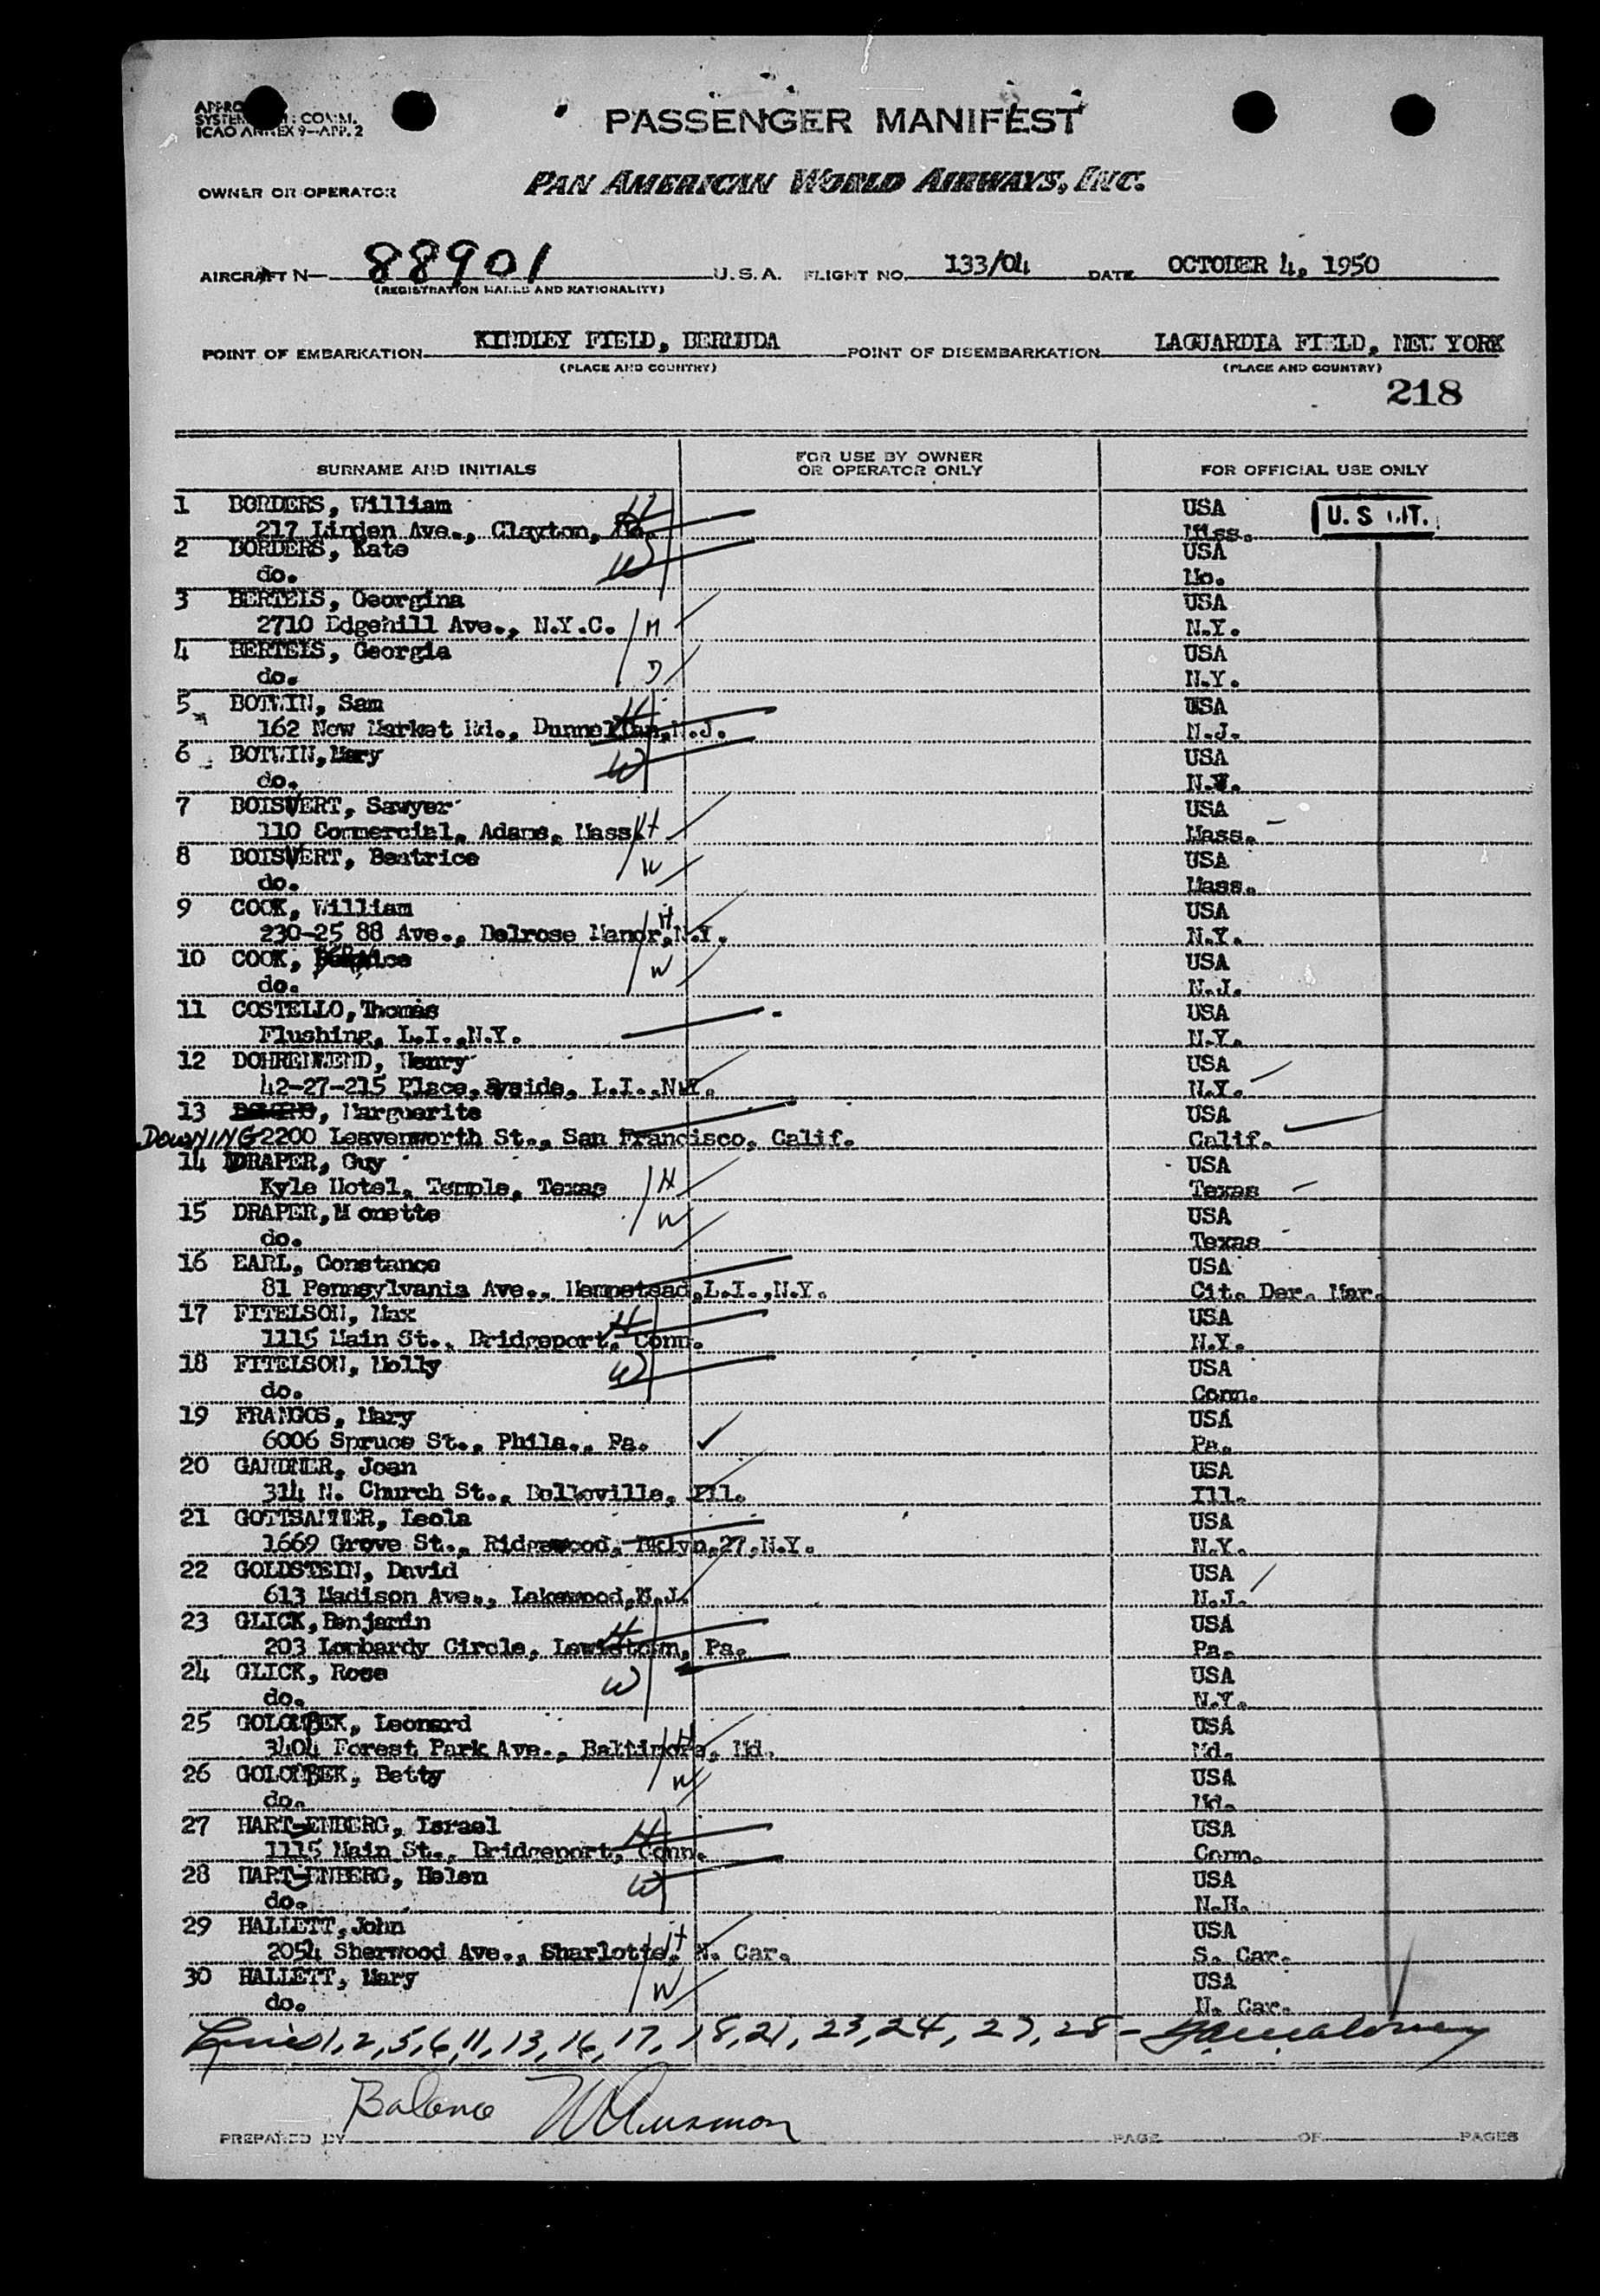 PASSENGER MANIFEST
ICAO ANNEX 9-APP. 2
OWNER OR OPERATOR PAN AMERICAN WORLD AIRWAYS, INC.
AIRCRAFT N- 88901 U.S.A. FLIGHT NO. 133/04 DATE OCTOBER 4, 1950
(REGISTRATION MARKS AND NATIONALITY)
POINT OF EMBARKATION KINDLEY FIELD, BERMUDA POINT OF DISEMBARKATION LAGUARDIA FIELD, NEW YORK
(PLACE AND COUNTRY) (PLACE AND COUNTRY)
218
SURNAME AND INITIALS FOR USE BY OWNER OR OPERATOR ONLY FOR OFFICIAL USE ONLY
1 BORDERS, William H USA U.S.
217 Linden Ave., Clayton, Mo. Miss.
2 BORDERS, Kate W USA
do. Mo.
3 BERTEIS, Georgina USA
2710 Edgehill Ave., N.Y.C. M N.Y.
4 BERTEIS, Georgia USA
do. D N.Y.
5 BOTWIN, Sam H USA
162 New Market Rd., Dunnellen, N.J. N.J.
6 BOTWIN, Mary W USA
do.
7 BOISVERT, Sawyer USA
110 Commercial, Adams, Mass. H Mass.
8 BOISVERT, Beatrice W USA
do. Mass.
9 COOK, William H USA
230-25 88 Ave., Belrose Manor, N.Y. N.Y.
10 COOK, W USA
do. N.J.
11 COSTELLO, Thomas USA
Flushing, L.I.,N.Y. N.Y.
12 DOHRENWEND, Henry USA
42-27-215 Place, Byside, L.I.,N.Y. N.Y.
13 Marguerite USA
DOWNING 2200 Leavenworth St., San Francisco, Calif. Calif.
14 DRAPER, Guy USA
Kyle Hotel, Temple, Texas H Texas
15 DRAPER, M onette W USA
do. Texas
16 EARL, Constance USA
81 Pennsylvania Ave., Hempstead, L.I.,N.Y. Cit. Der. Mar.
17 FITELSON, Max H USA
1115 Main St., Bridgeport, Conn. N.Y.
18 FITELSON, Molly W USA
do. Conn.
19 FRANGOS, Mary USA
6006 Spruce St., Phila., Pa. Pa.
20 GARDNER, Joan USA
314 N. Church St., Belleville, Ill. Ill.
21 Leola USA
1669 Grove St., Ridgewood, Bklyn,27,N.Y. N.Y.
22 GOLDSTEIN, David USA
613 Madison Ave., Lakewood, N.J. N.J.
23 GLICK, Benjamin H USA
203 Lombardy Circle, Lewistown, Pa. Pa.
24 GLICK, Rose W USA
do. N.Y.
25 GOLOMBEK, Leonard H USA
3404 Forest Park Ave., Baltimore, Md. Md.
26 GOLOMBEK, Betty W USA
do. Md.
27 HART-ENBERG, Israel H USA
1115 Main St., Bridgeport, Conn. Conn.
28 HART-ENBERG, Helen W USA
do. N.H.
29 HALLETT, John H USA
2054 Sherwood Ave., Sharlotte, N. Car. S. Car.
30 HALLETT, Mary W USA
do. N. Car.
Lines 1, 2, 5, 6, 11, 13, 16, 17, 18, 21, 23, 24, 27, 28 -
Balance
PREPARED BY PAGE OF PAGES